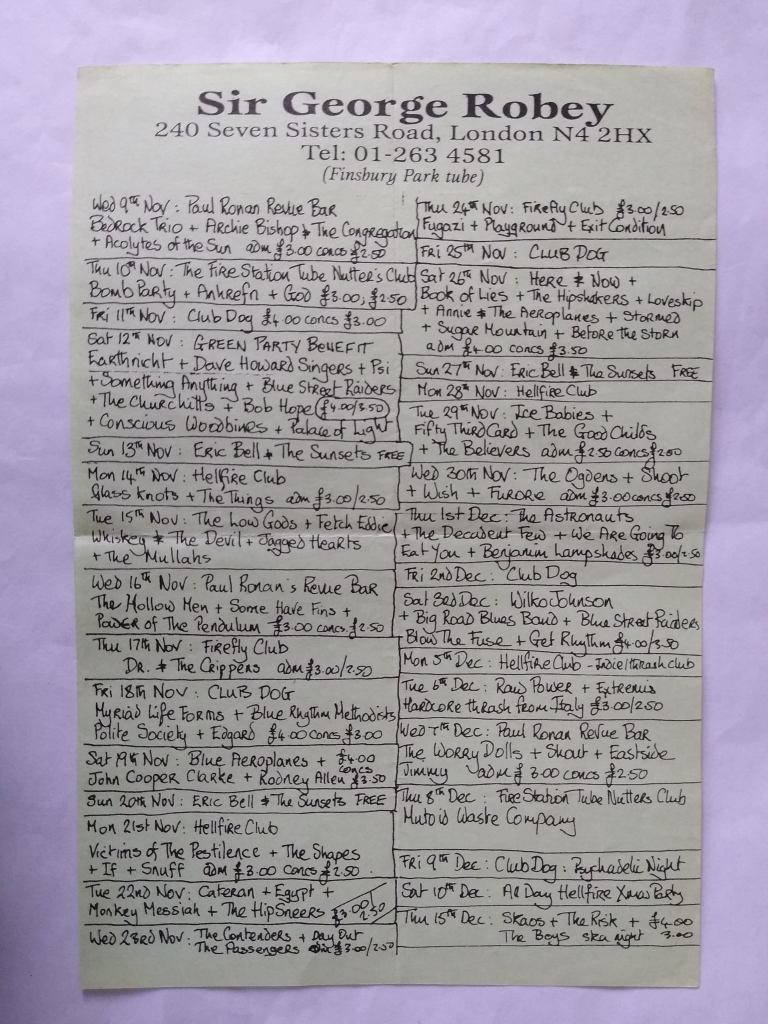 Sir George Robey
240 Seven Sisters Road, London N4 2HX
Tel: 01-263 4581
(Finsbury Park tube)
Wed 9th Nov: Paul Ronan Revue Bar
Bedrock Trio + Archie Bishop & The Congregation
+ Acolytes of the Sun adm £3.00 concs £2.50
Thu 10th Nov: The Fire Station Tube Nutter's Club
Bomb Party + Anhrefn + God £3.00; £2.50
Fri 11th Nov: Club Dog £4.00 concs £3.00
Sat 12th Nov: GREEN PARTY BENEFIT
Earthnicht + Dave Howard Singers + Psi
+ Something Anything + Blue Street Raiders
+ The Churchills + Bob Hope £4.00/3.50
+ Conscious Woodbines + Palace of Light
Sun 13th Nov: Eric Bell & The Sunsets FREE
Mon 14th Nov: Hellfire Club
Glass Knots + The Things adm £3.00/2.50
Tue 15th Nov: The Low Gods + Fetch Eddie
Whiskey & The Devil + Jagged Hearts
+ The Mullahs
Wed 16th Nov: Paul Ronan's Revue Bar
The Hollow Men + Some Have Fins +
Power of The Pendulum £3.00 concs £2.50
Thu 17th Nov: Firefly Club
Dr. & The Crippens adm £3.00/2.50
Fri 18th Nov: CLUB DOG
Myriad Life Forms + Blue Rhythm Methodists
Polite Society + Edgard £4.00 concs £3.00
Sat 19th Nov: Blue Aeroplanes + £4.00
John Cooper Clarke + Rodney Allen concs £3.50
Sun 20th Nov: Eric Bell & The Sunsets FREE
Mon 21st Nov: Hellfire Club
Victims of the Pestilence + The Shapes
+ If + Snuff adm £3.00 concs £2.50.
Tue 22nd Nov: Cateran + Egypt +
Monkey Messiah + The HipSneers £3.00/2.50
Wed 23rd Nov: The Contenders + Day Out
The Passengers adm £3.00/2.50
Thu 24th Nov: Firefly Club £3.00/2.50
Fugazi + Playground + Exit Condition
Fri 25th Nov: CLUB DOG
Sat 26th Nov: Here & Now +
Book of Lies + The Hipshakers + Loveskip
+ Annie & The Aeroplanes + Stormed
+ Sugar Mountain + Before the Storm
adm £4.00 concs £3.50
Sun 27th Nov: Eric Bell & The Sunsets FREE
Mon 28th Nov: Hellfire Club
Tue 29th Nov: Ice Babies +
Fifty Third Card + The Good Childs
+ The Believers adm £2.50 concs £2.00
Wed 30th Nov: The Ogdens + Shoot
+ Wish + Furore adm £3.00 concs £2.50
Thu 1st Dec: The Astronauts
+ The Decadent Few + We Are Going To
Eat You + Benjamin Lampshades £3.00/2.50
Fri 2nd Dec: Club Dog
Sat 3rd Dec: Wilko Johnson
+ Big Road Blues Band + Blue Street Raiders
Blow The Fuse + Get Rhythm £4.00/3.50
Mon 5th Dec: Hellfire Club - Indie/thrash club
Tue 6th Dec: Raw Power + Extremis
Hardcore thrash from Italy £3.00/2.50
Wed 7th Dec: Paul Ronan Revue Bar
The Worry Dolls + Shout + Eastside
Jimmy adm £3.00 concs £2.50
Thu 8th Dec: Fire Station Tube Nutters Club
Mutoid Waste Company
Fri 9th Dec: Club Dog: Psychadelic Night
Sat 10th Dec: All Day Hellfire Xmas Party
Thu 15th Dec: Skaos + The Risk + £4.00
The Boys ska night 3.00